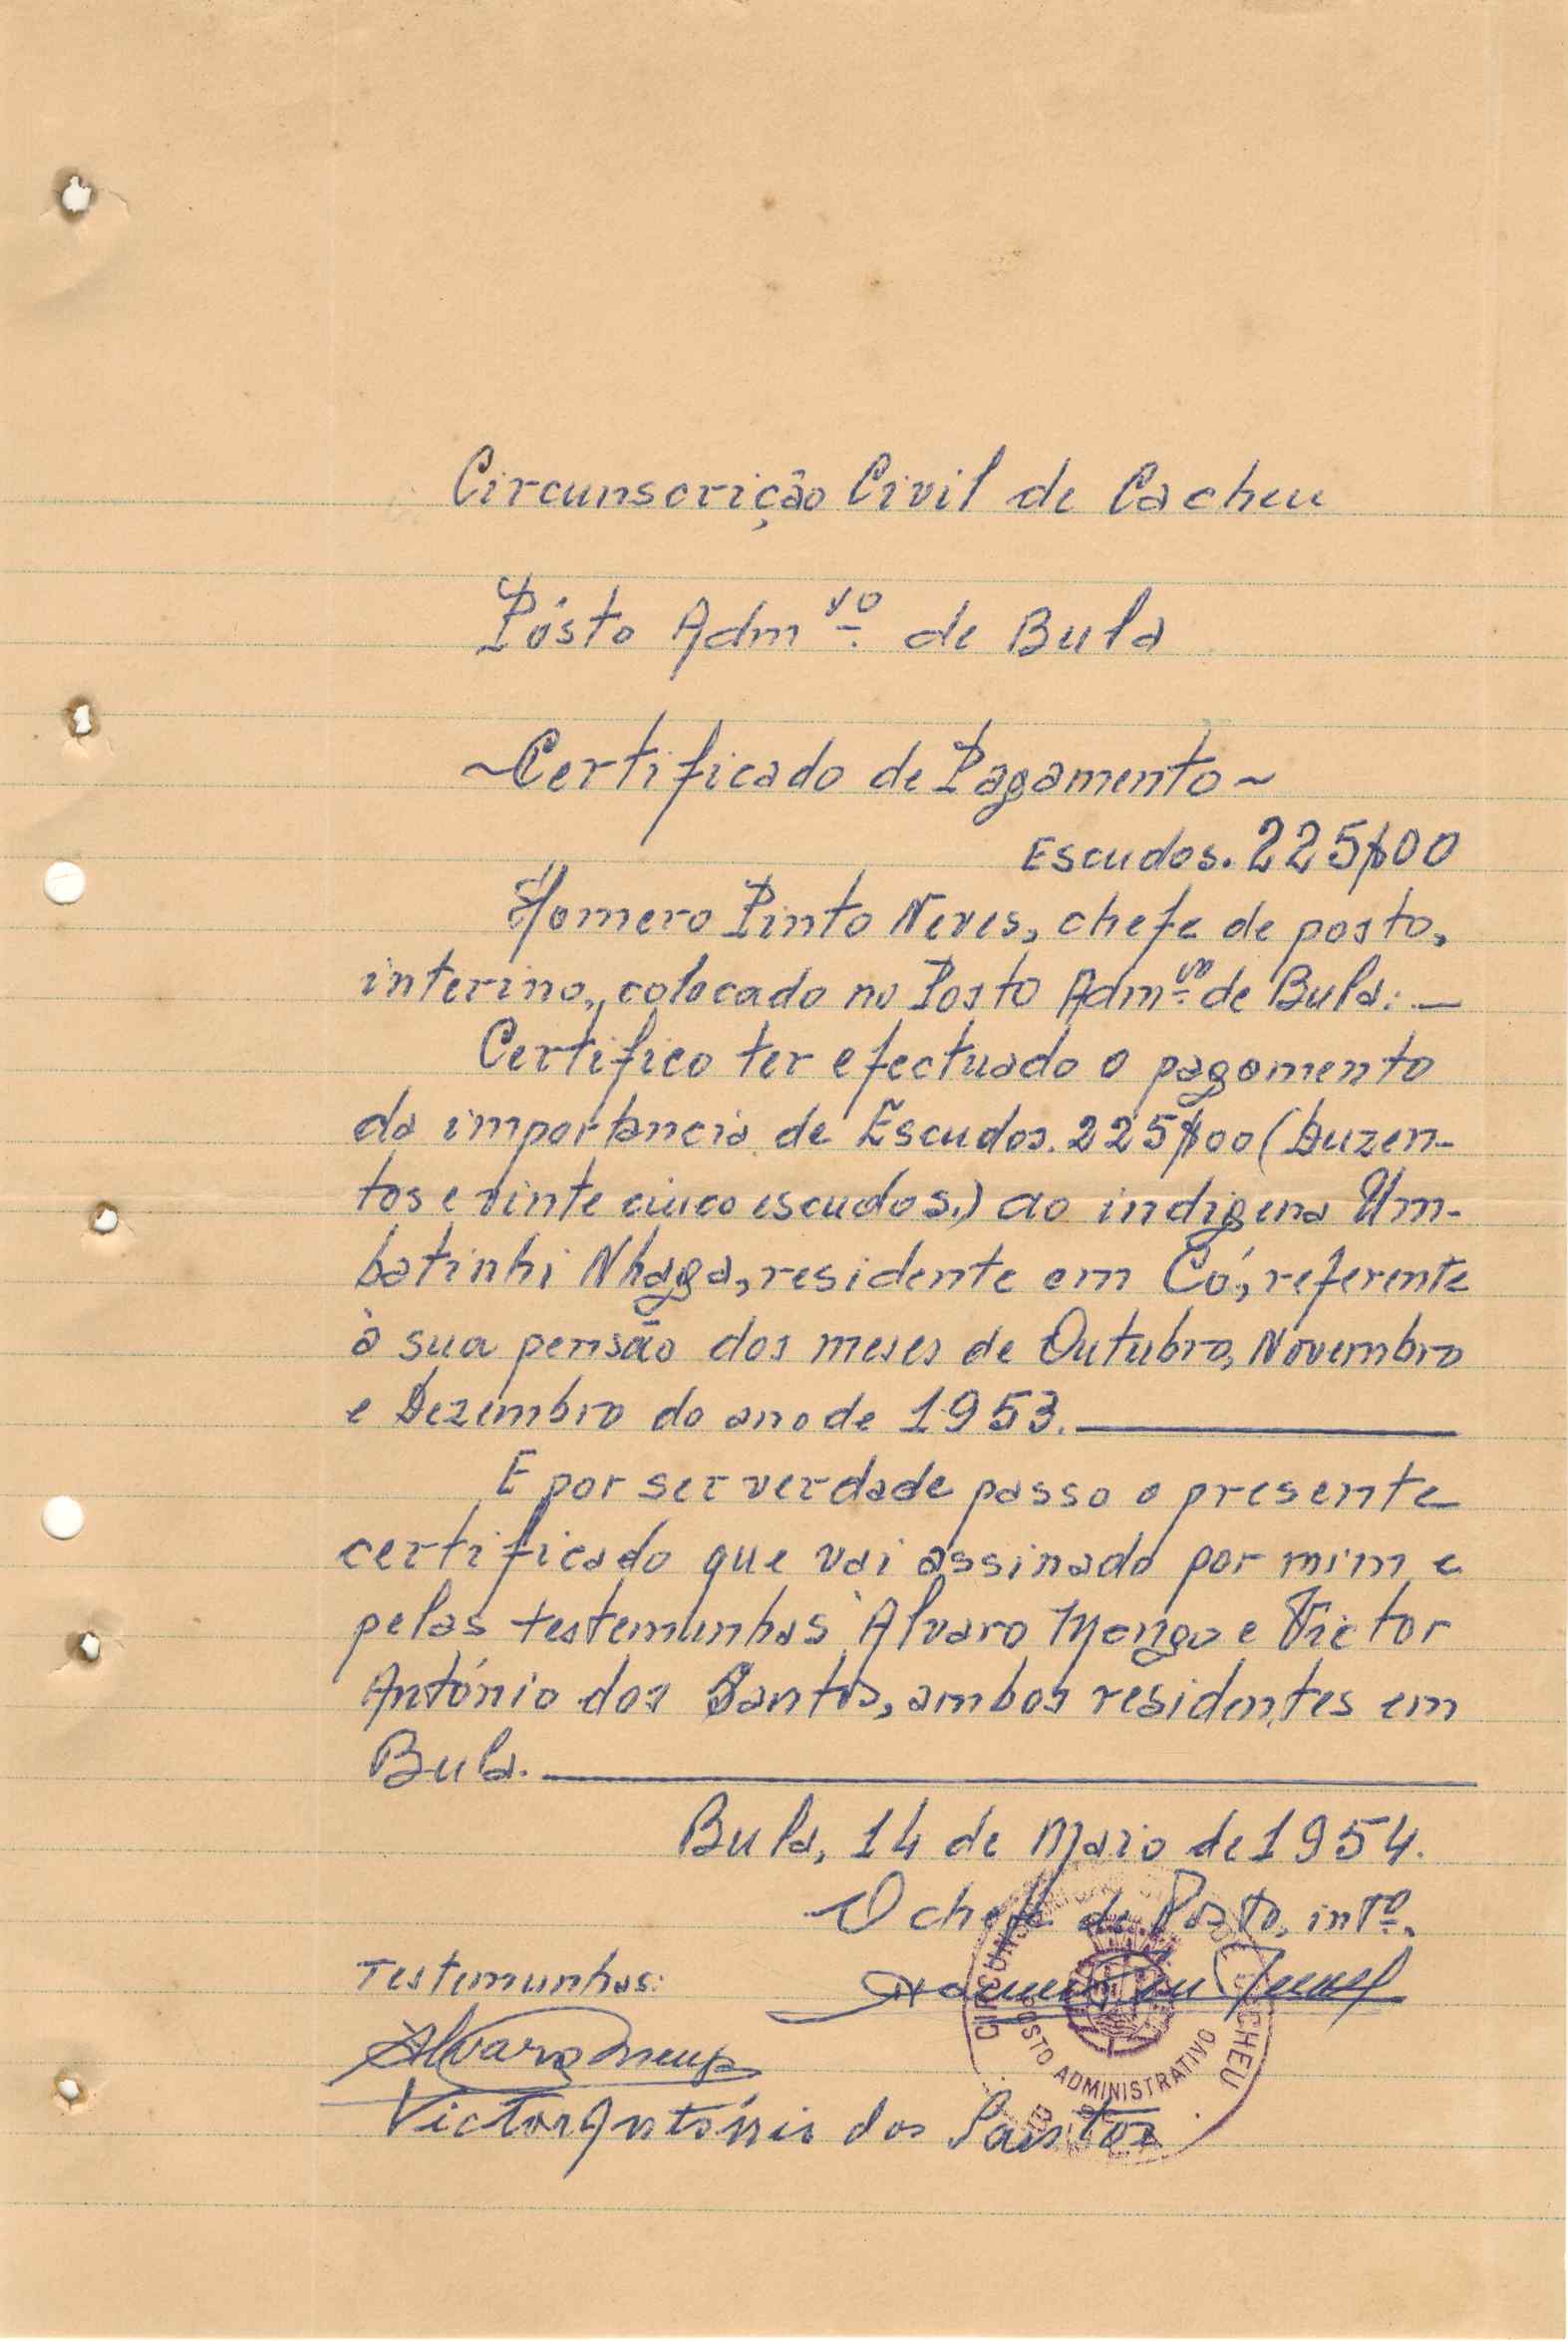 Circunscrição Civil de Cacheu
Pôsto Admvo. de Bula
~Certificado de Pagamento~
Escudos. 225$00
Homero Pinto Neves, chefe de posto,
interino, colocado no Posto Admvo. de Bula: —
Certifico ter efectuado o pagamento
da importancia de Escudos. 225$00 (Duzen-
tos e vinte cinco escudos.) ao indigena Um-
batinhi Nhaga, residente em Có, referente
à sua pensão dos meses de Outubro, Novembro
e Dezembro do ano de 1953.
E por ser verdade passo o presente
certificado que vai assinado por mim e
pelas testemunhas Alvaro Mengo e Victor
António dos Santos, ambos residentes em
Bula.
Bula, 14 de Maio de 1954.
O chefe de Posto, intº.
Testemunhas:
Alvaro
Victor António dos Santos
CIRCUNSCRIÇÃO CACHEU
POSTO ADMINISTRATIVO